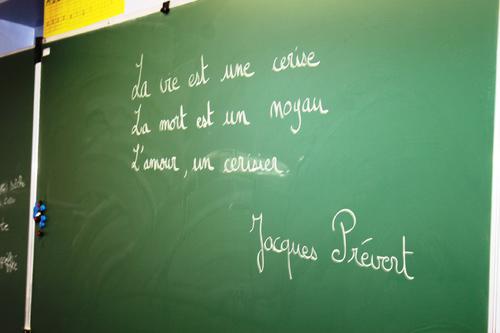 La vie est une cerise
La mort est un noyau
L'amour, un cerisier.
Jacques Prévert